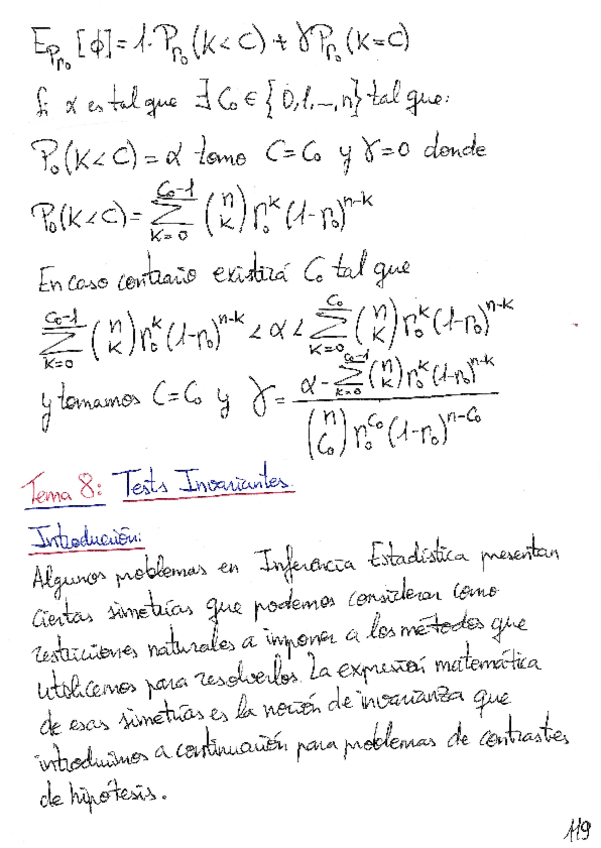 E_{P_{p_0}}[ϕ] = 1·P_{p_0}(K<C) + γP_{p_0}(K=C)
Si α es tal que ∃ C_0 ∈ {0,1,…,n} tal que:
P_0(K<C) = α tomo C=C_0 y γ=0 donde
P_0(K<C) = \sum_{K=0}^{C_0-1} \binom{n}{K} p_0^K (1-p_0)^{n-K}
En caso contrario existirá C_0 tal que
\sum_{K=0}^{C_0-1} \binom{n}{K} p_0^K (1-p_0)^{n-K} < α < \sum_{K=0}^{C_0} \binom{n}{K} p_0^K (1-p_0)^{n-K}
y tomamos C=C_0 y γ = \frac{α - \sum_{K=0}^{C_0-1} \binom{n}{K} p_0^K (1-p_0)^{n-K}}{\binom{n}{C_0} p_0^{C_0} (1-p_0)^{n-C_0}}
Tema 8: Tests Invariantes.
Introducción:
Algunos problemas en Inferencia Estadística presentan
ciertas simetrías que podemos considerar como
restricciones naturales a imponer a los métodos que
utilicemos para resolverlos. La expresión matemática
de esas simetrías es la noción de invarianza que
introducimos a continuación para problemas de contrastes
de hipótesis.
119